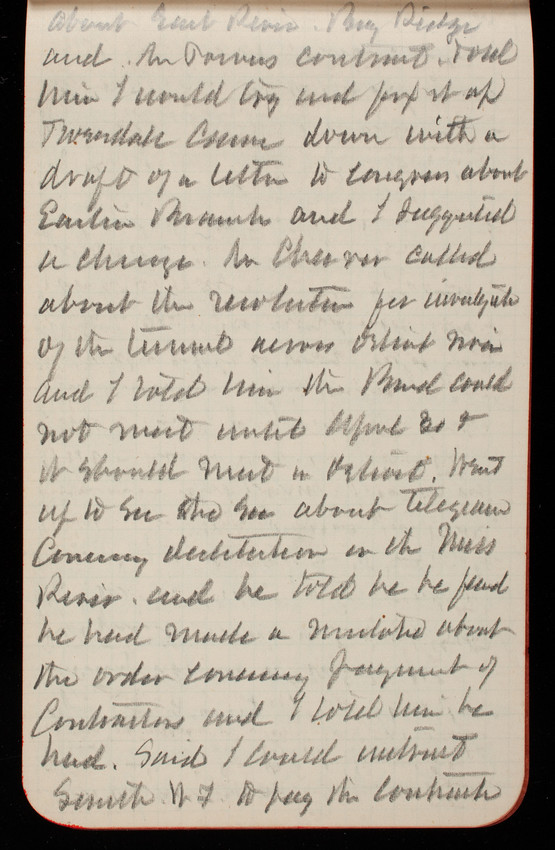 about East River. Bay Ridge
and Mr Towers contract. Told
him I would try and fix it up
Tweedale came down with a
draft of a letter to Congress about
Branch and I suggested
a change. Mr called
about the resolution for investigate
of the tunnel across Detroit River
and I told him the Board could
not meet until April 20 &
it should meet in Detroit. Went
up to see the Sec about telegram
Concerning destitution in the Miss
River. and he told he he
he had made a mistake about
the order concerning payment of
Contractors and I told him he
had. Said I could instruct
Smith to pay the contracts